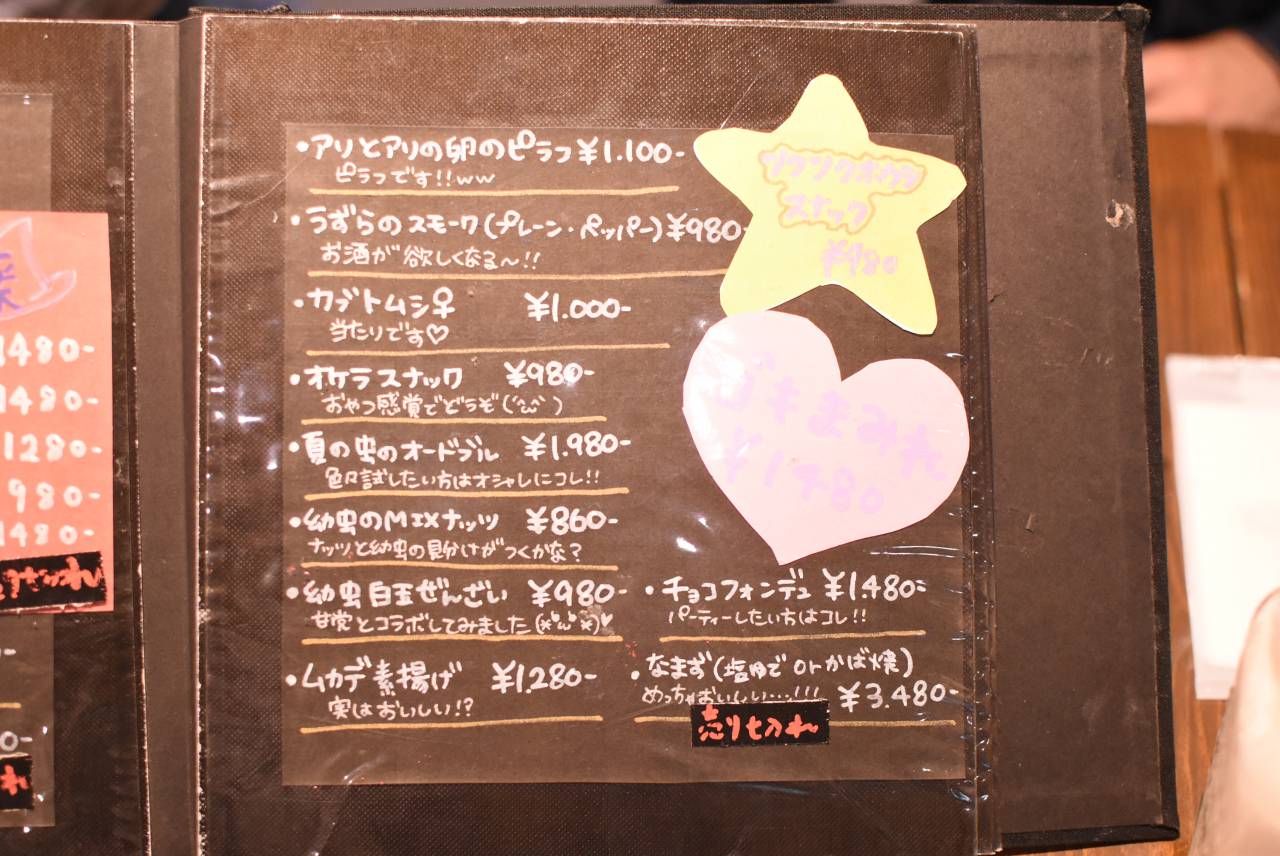 ・アリとアリの卵のピラフ ¥1.100-
ピラフです!!ww
・うずらのスモーク(プレーン・ペッパー) ¥980-
お酒が欲しくなる〜!!
・カブトムシ♀ ¥1.000-
当たりです♡
・オケラスナック ¥980-
おやつ感覚でどうぞ(´ω`)
・夏の虫のオードブル ¥1.980-
色々試したい方はオシャレにコレ!!
・幼虫のMIXナッツ ¥860-
ナッツと幼虫の見分けがつくかな?
・幼虫白玉ぜんざい ¥980-
甘党とコラボしてみました(*°ω°*)♥
・ムカデ素揚げ ¥1.280-
実はおいしい!?
ツクツクホウシ
スナック
¥980
ゴキまみれ
¥1480
・チョコフォンデュ ¥1.480-
パーティーしたい方はコレ!!
・なまず(塩ゆで orかば焼)
めっちゃおいしい…!!! ¥3.480-
売り切れ
1480-
1480-
1280-
980-
1480-